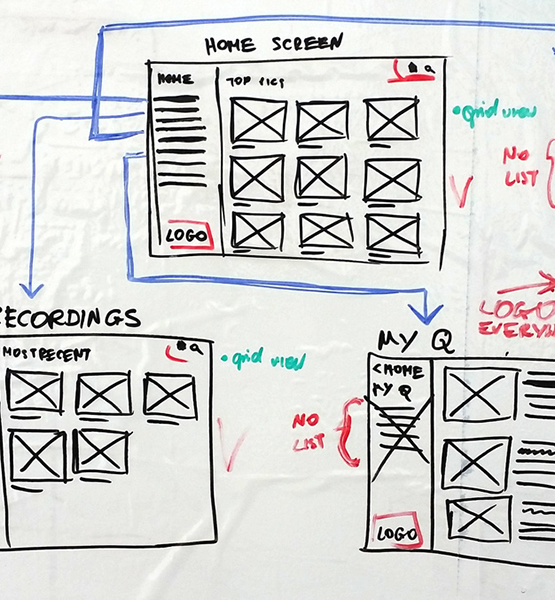 HOME SCREEN
HOME
TOP
LOGO
• grid view
NO
LIST
ECORDINGS
MOST RECENT
• grid view
MY Q
< HOME
MY Q
LOGO
NO
LIST
LOGO
EVERY